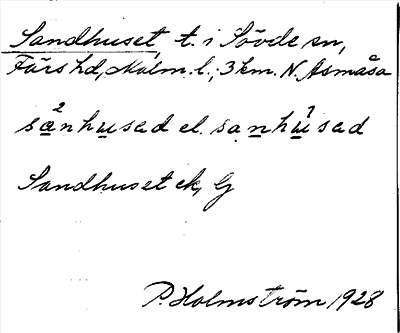 Sandhuset t. i Sövde sn,
Färs hd, Malm. l.; 3 km. N. Åsmåsa
sa²nhusad el. sanhu´sad
Sandhuset ek, G
P. Holmström 1928